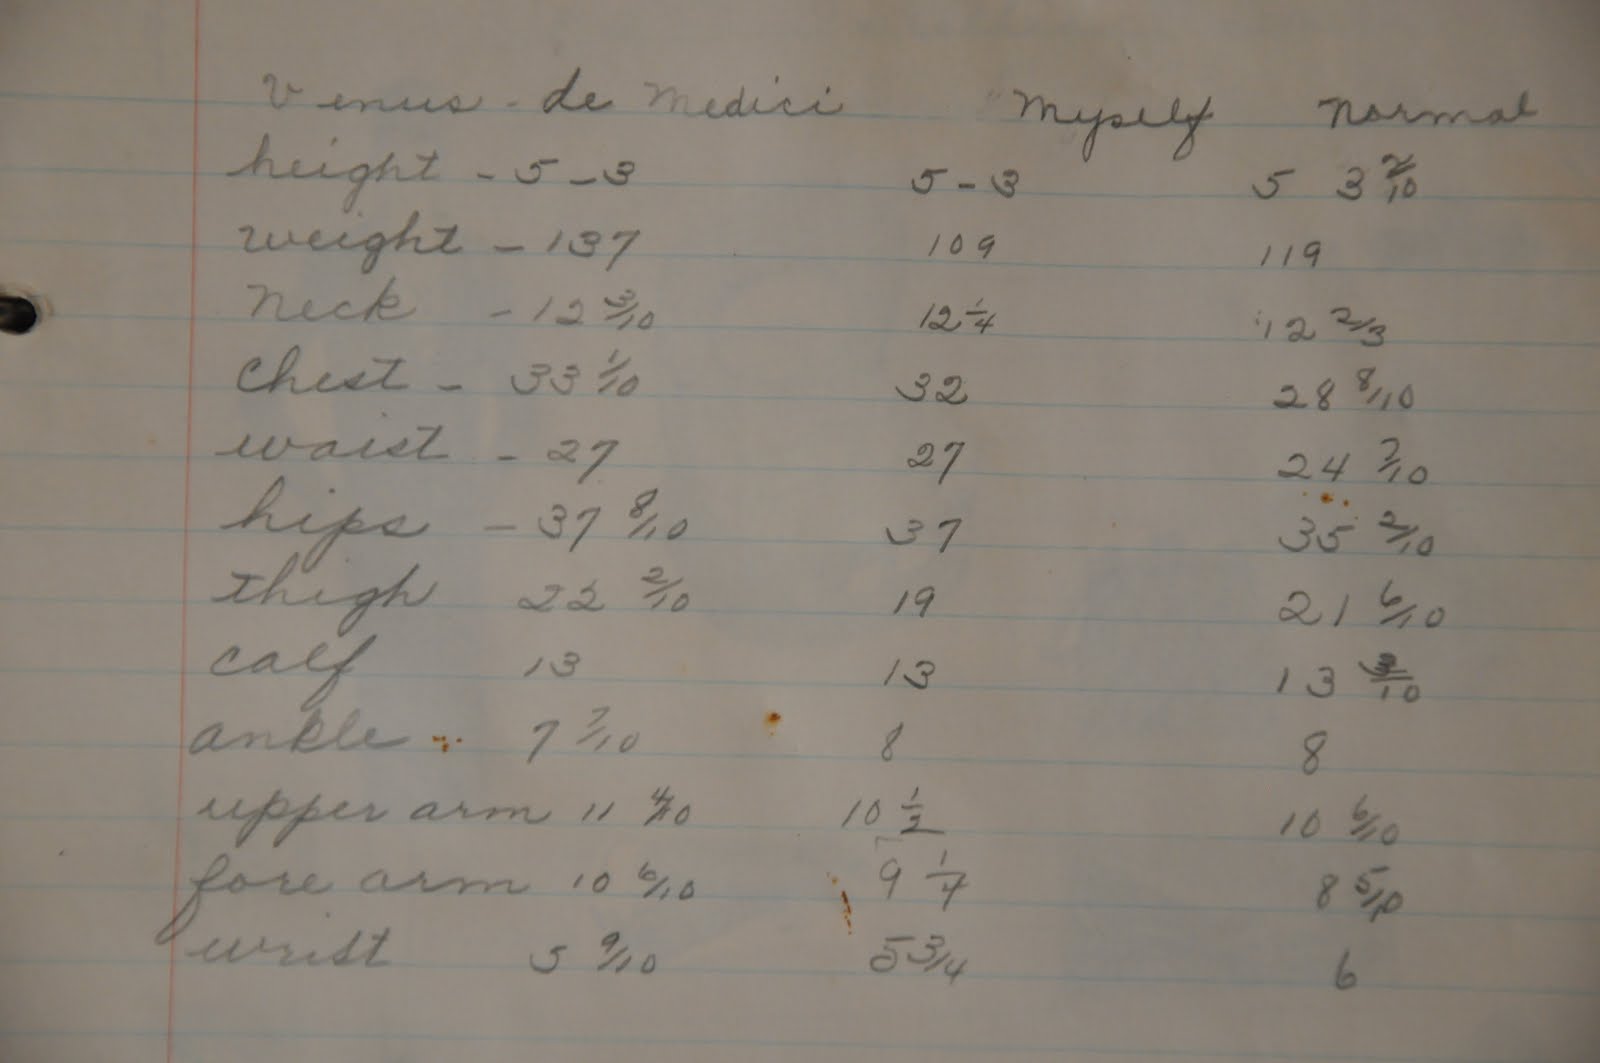 Venus - de Medici Myself Normal
height - 5-3 5-3 5 3 2/10
weight - 137 109 119
Neck - 12 3/10 12 1/4 12 2/3
Chest - 33 1/10 32 28 8/10
waist - 27 27 24 7/10
hips - 37 8/10 37 35 2/10
thigh 22 2/10 19 21 6/10
calf 13 13 13
ankle - 7 7/10 8 8
upper arm 11 4/10 10 1/2 10 6/10
fore arm 10 6/10 9 8 5/10
wrist 5 9/10 5 3/4 6